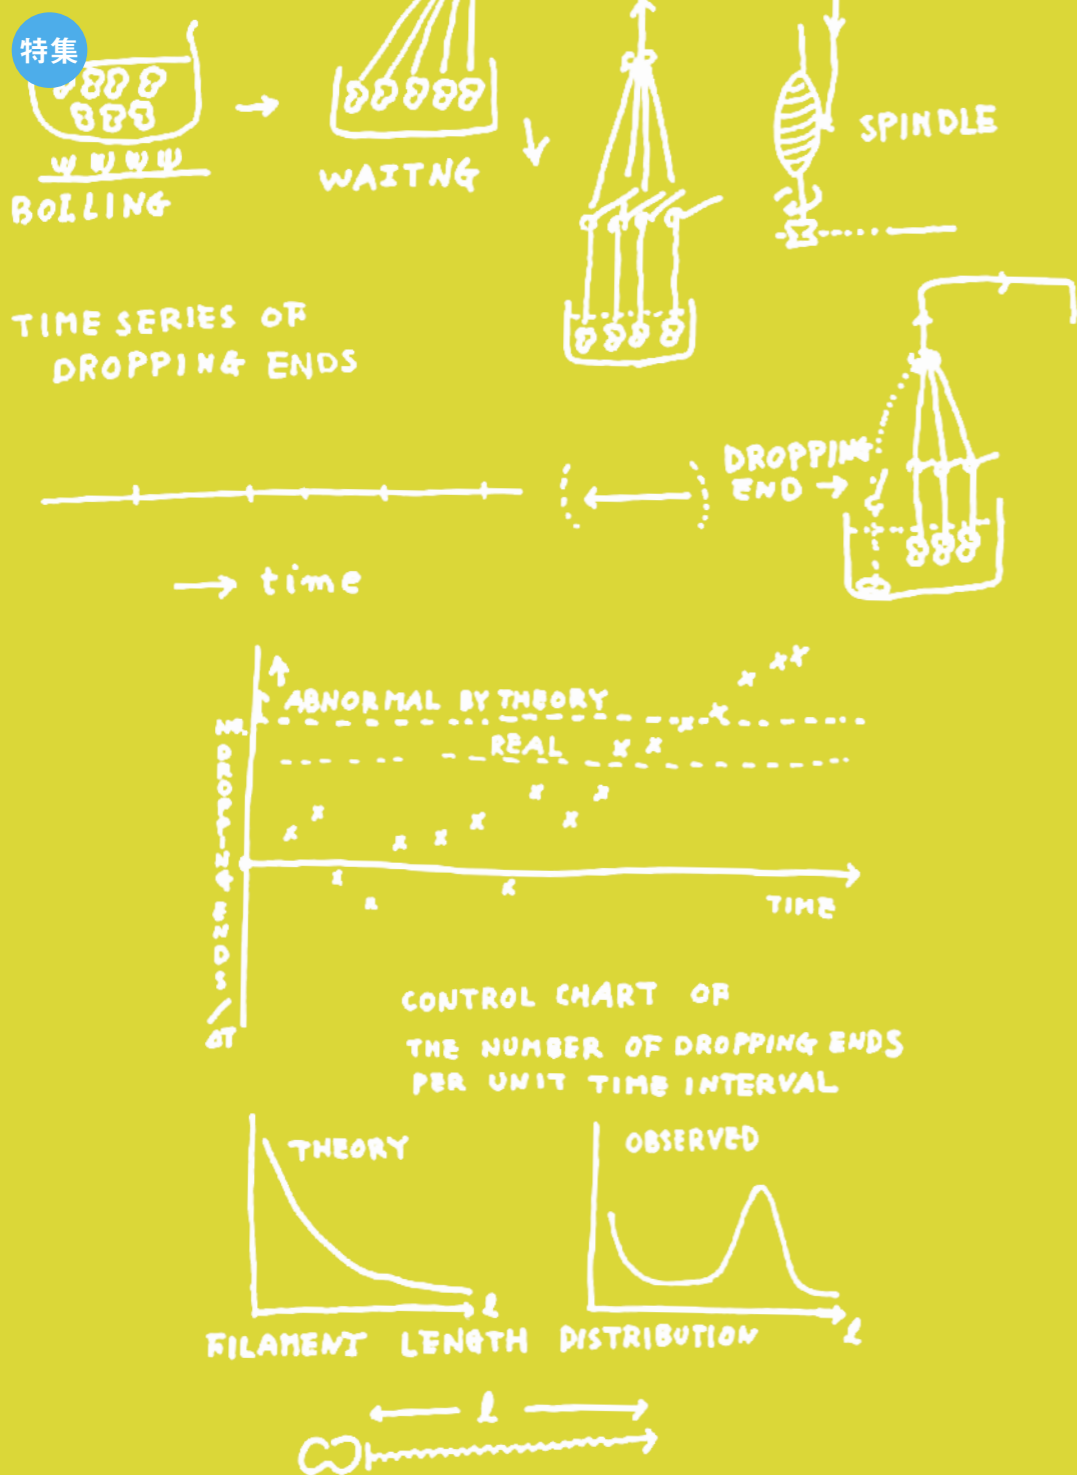 特集
BOILING
WAITNG
SPINDLE
TIME SERIES OF
DROPPING ENDS
DROPPING
END →
→ time
ABNORMAL BY THEORY
REAL
NO. DROPPING ENDS / ΔT
TIME
CONTROL CHART OF
THE NUMBER OF DROPPING ENDS
PER UNIT TIME INTERVAL
THEORY
OBSERVED
l
l
FILAMENT LENGTH DISTRIBUTION
l